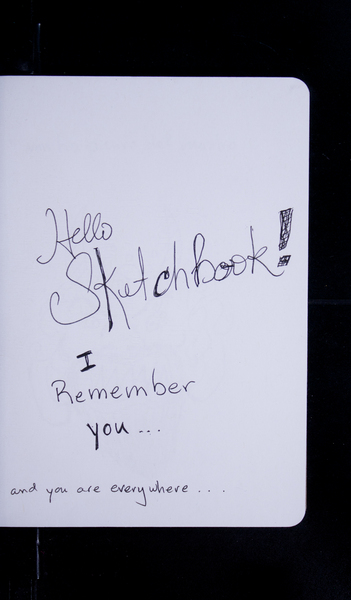 Hello
SketchBook!
I
Remember
you...
and you are everywhere....